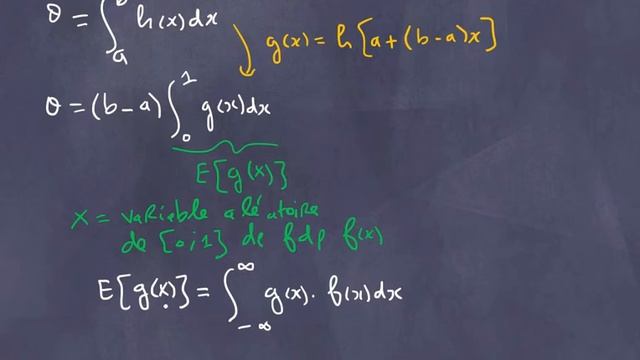 θ = ∫ₐᵇ h(x)dx
g(x) = h[a+(b-a)x]
θ = (b-a) ∫₀¹ g(x)dx
E[g(x)]
X = variable aléatoire
de [0;1] de fdp f(x)
E[g(x)] = ∫₋∞^∞ g(x). f(x)dx